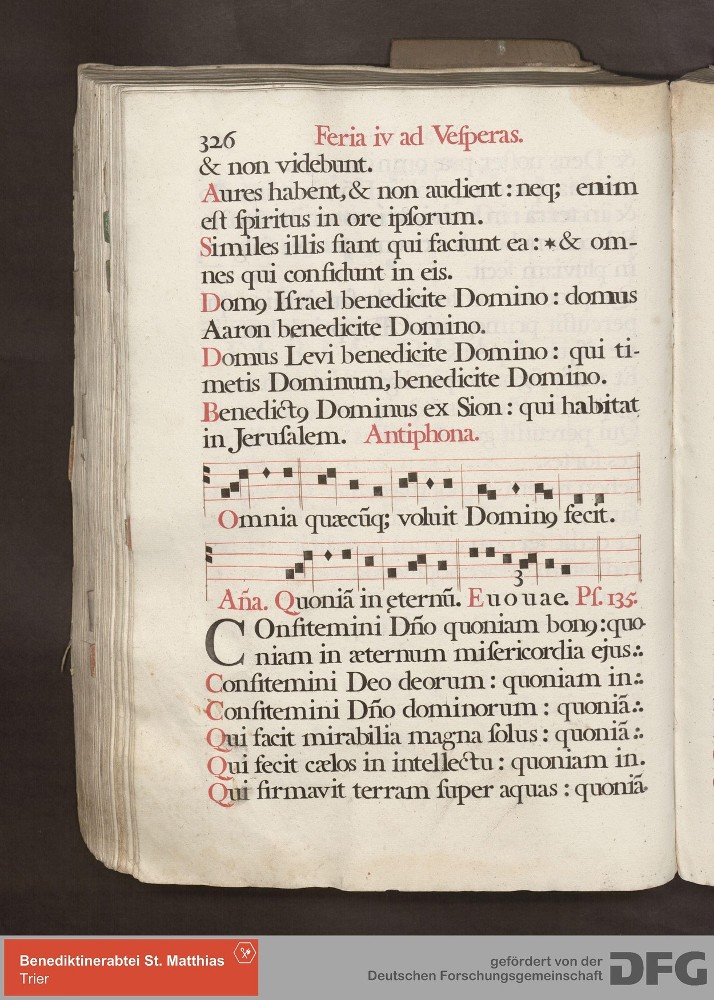 326 Feria iv ad Veſperas.
& non videbunt.
Aures habent, & non audient : neq; enim
eſt ſpiritus in ore ipſorum.
Similes illis fiant qui faciunt ea : * & om-
nes qui confidunt in eis.
Domꝯ Iſrael benedicite Domino : domus
Aaron benedicite Domino.
Domus Levi benedicite Domino : qui ti-
metis Dominum, benedicite Domino.
Benedictꝯ Dominus ex Sion : qui habitat
in Jeruſalem. Antiphona.
Omnia quæcūq; voluit Dominꝯ fecit.
3
Aña. Quoniā in ęternū. E u o u a e. Pſ. 135.
COnfitemini Dño quoniam bonꝯ : quo-
niam in æternum miſericordia ejus.:
Confitemini Deo deorum : quoniam in.:
Confitemini Dño dominorum : quoniā.:
Qui facit mirabilia magna ſolus : quoniā.:
Qui fecit cælos in intellectu : quoniam in.
Qui firmavit terram ſuper aquas : quoniā.
Benediktinerabtei St. Matthias
Trier
gefördert von der
Deutschen Forschungsgemeinschaft
DFG